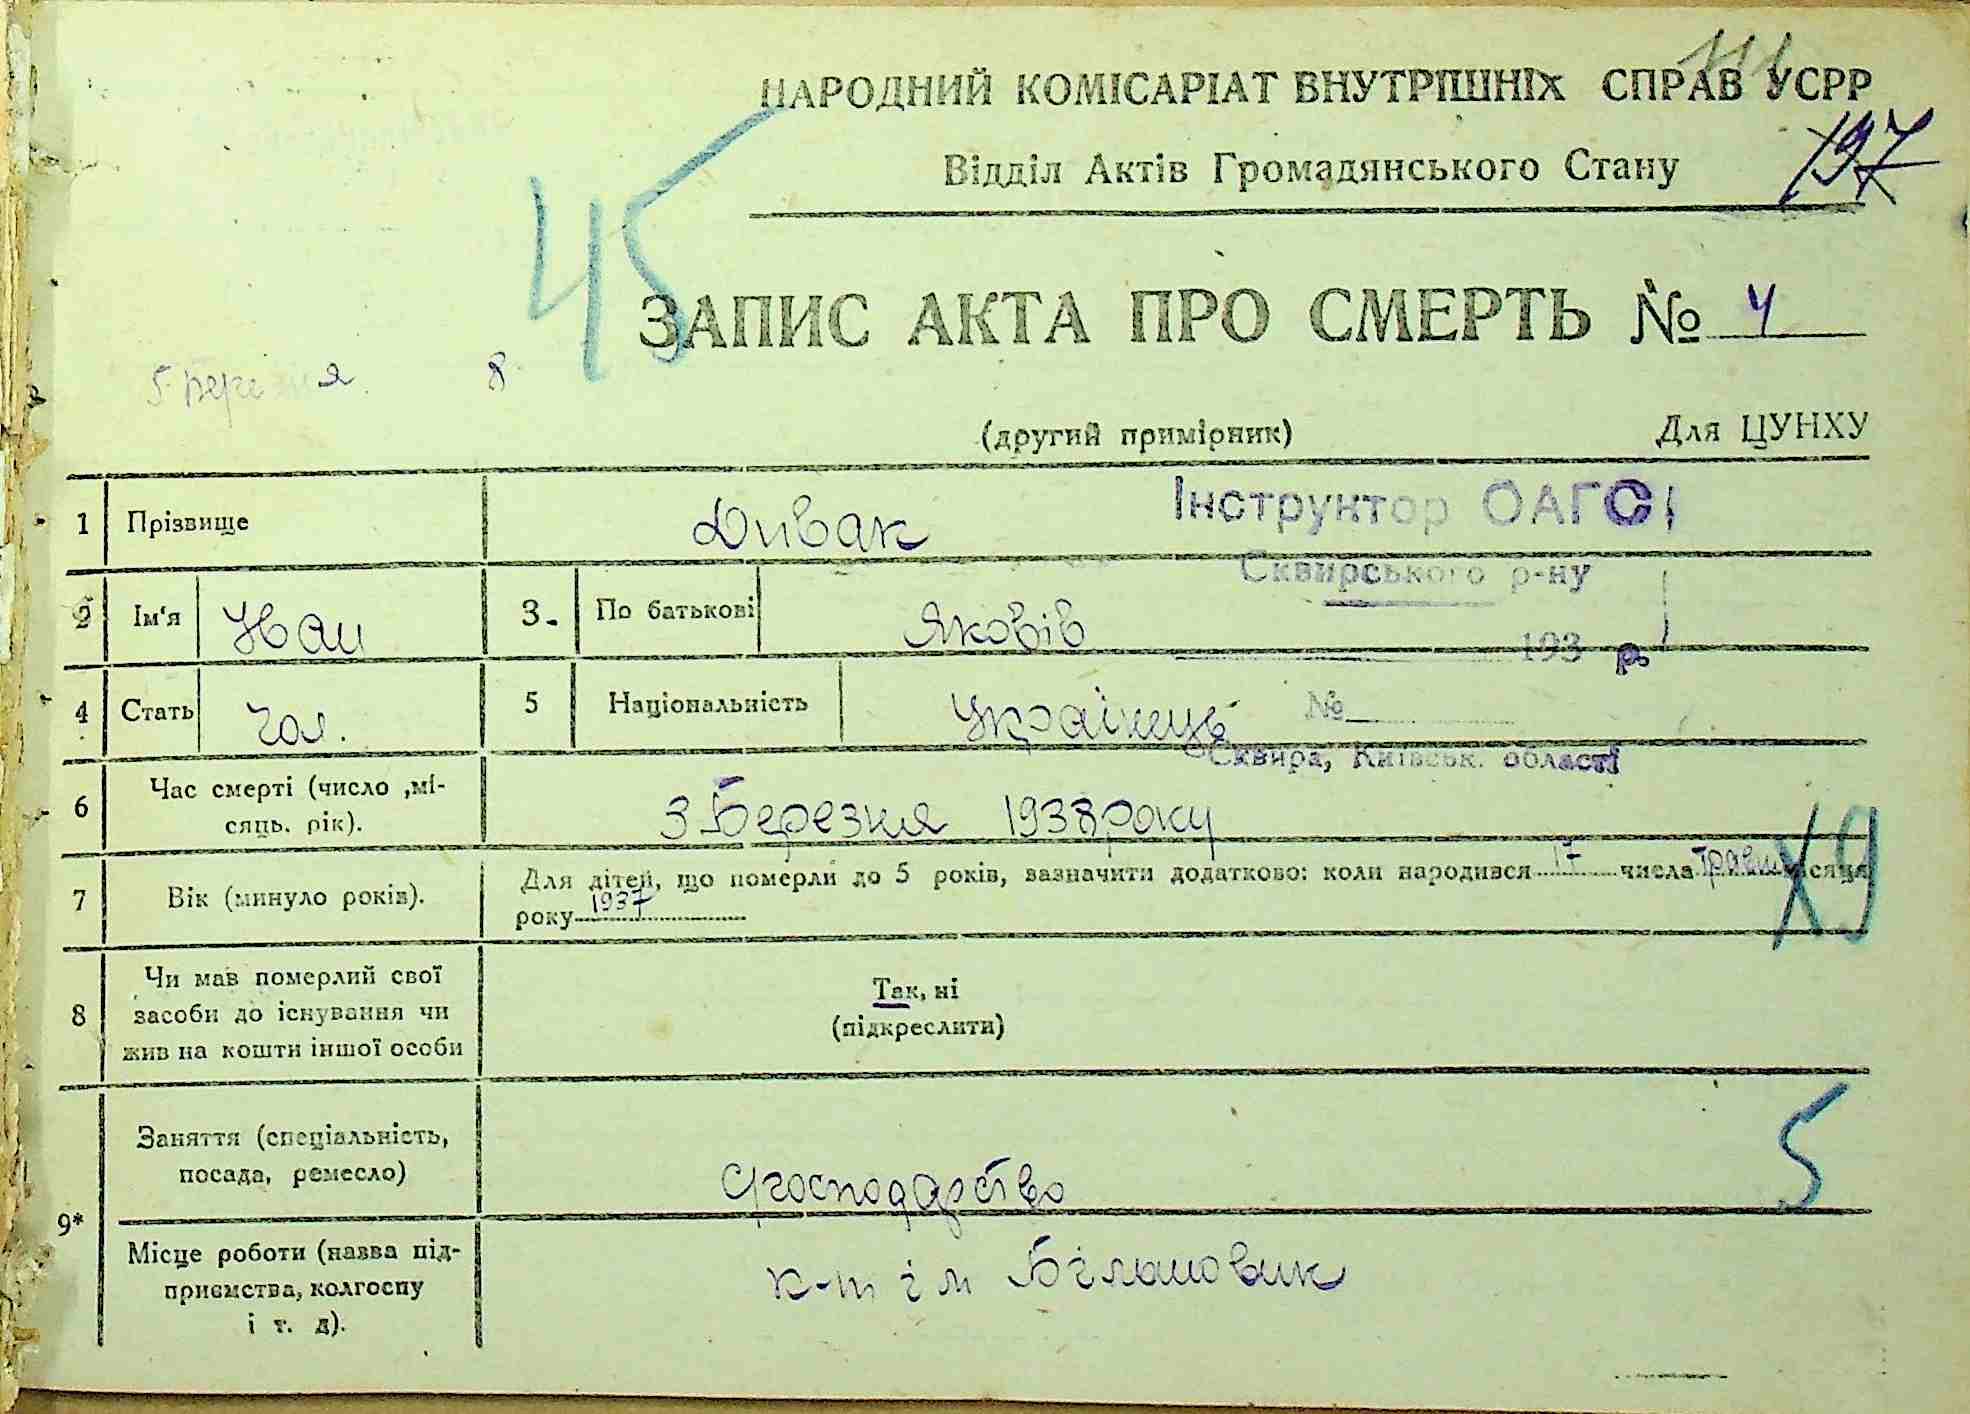 111
НАРОДНИЙ КОМІСАРІАТ ВНУТРІШНІХ СПРАВ УСРР
197
Відділ Актів Громадянського Стану
45
ЗАПИС АКТА ПРО СМЕРТЬ № 4
5 березня 8
(другий примірник) Для ЦУНХУ
1 Прізвище Дивак
Інструктор ОАГС
Сквирського р-ну
193 р.
№
Сквира, Київськ. області
2 Ім'я Іван 3. По батькові Яковів
4 Стать Чол. 5 Національність Українець
6 Час смерті (число ,мі-
сяць. рік). 3 Березня 1938 року
7 Вік (минуло років). Для дітей, що померли до 5 років, зазначити додатково: коли народився 17 числа Травня місяця
року 1937
X9
8 Чи мав померлий свої
засоби до існування чи
жив на кошти іншої особи
Так, ні
(підкреслити)
9* Заняття (спеціальність,
посада, ремесло) С/господарство
5
Місце роботи (назва під-
приємства, колгоспу
і т. д).
к-п ім